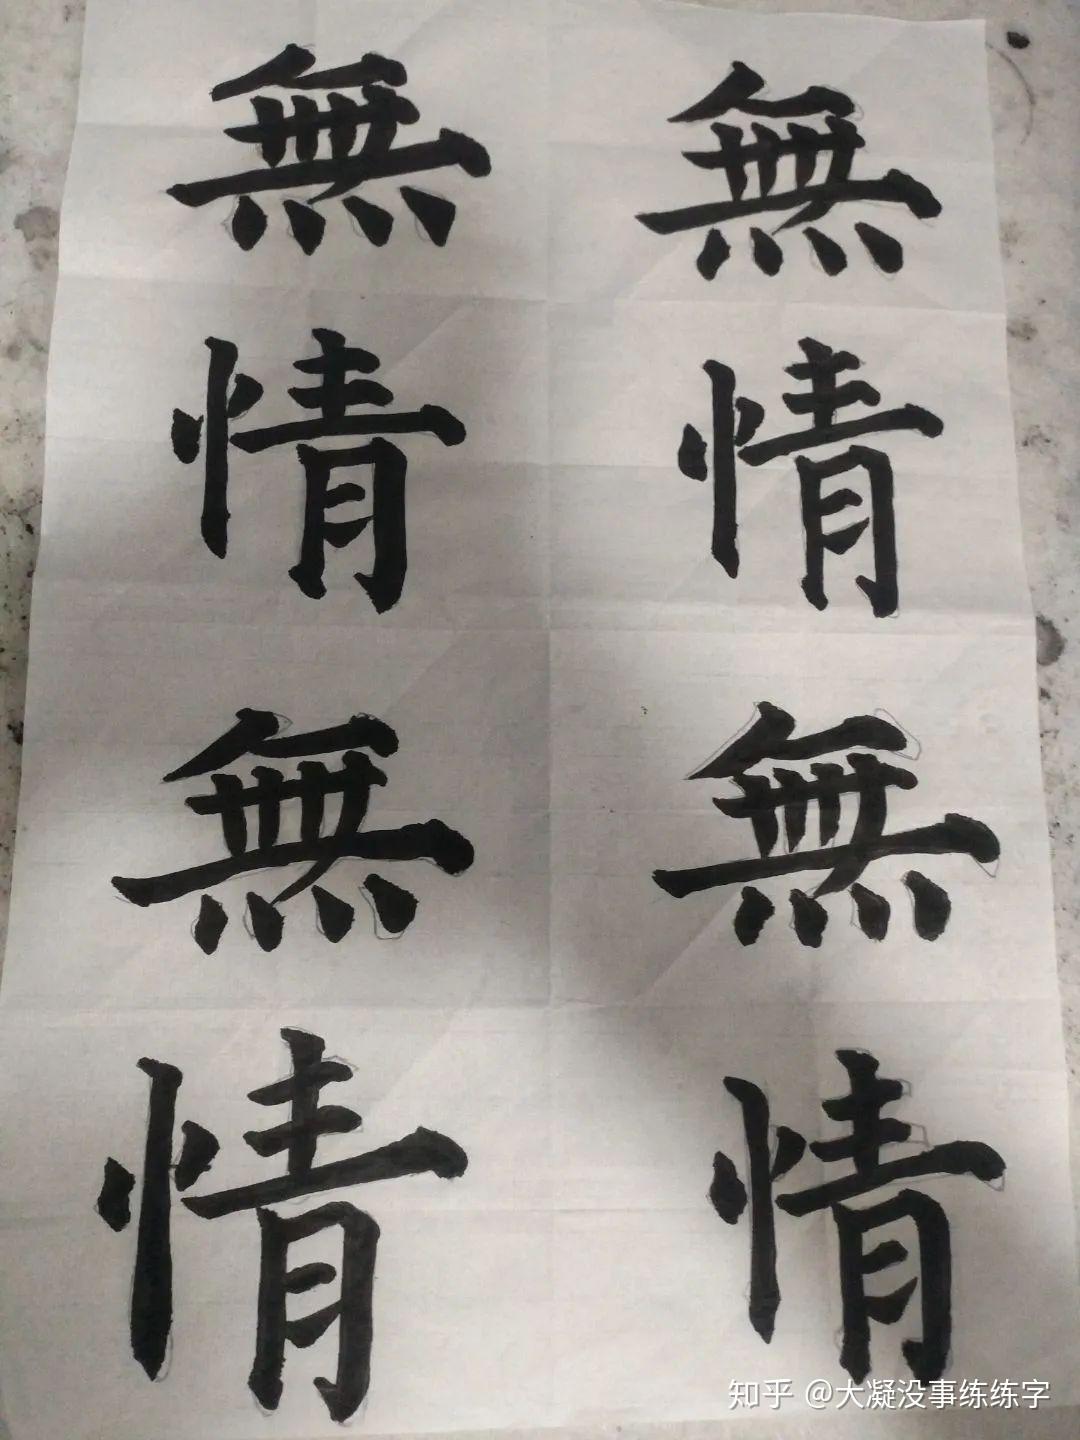 無 無
情 情
無 無
情 情
知乎 @大凝没事练练字